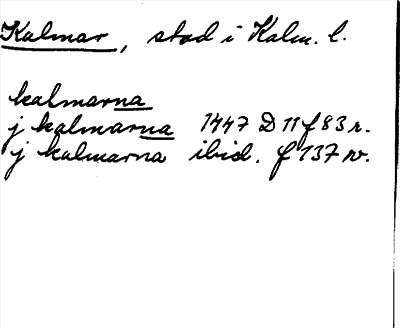 Kalmar, stad i Kalm. l.
kalmarna
j kalmarna 1447 D 11 f 83 r.
j kalmarna ibid. f 137 v.